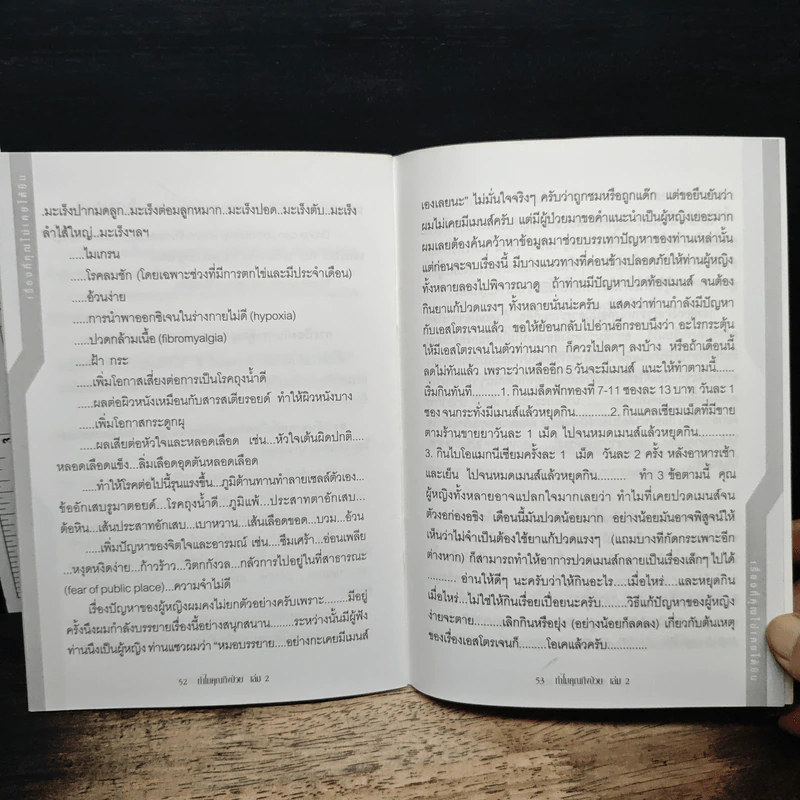 .มะเร็งปากมดลูก..มะเร็งต่อมลูกหมาก..มะเร็งปอด..มะเร็งตับ..มะเร็ง
ลำไส้ใหญ่..มะเร็งฯลฯ
.....ไมเกรน
.....โรคลมชัก (โดยเฉพาะช่วงที่มีการตกไข่และมีประจำเดือน)
.....อ้วนง่าย
.....การนำพาออกซิเจนในร่างกายไม่ดี (hypoxia)
.....ปวดกล้ามเนื้อ (fibromyalgia)
.....ฝ้า กระ
.....เพิ่มโอกาสเสี่ยงต่อการเป็นโรคถุงน้ำดี
.....ผลต่อผิวหนังเหมือนกับสารสเตียรอยด์ ทำให้ผิวหนังบาง
.....เพิ่มโอกาสกระดูกผุ
.....ผลเสียต่อหัวใจและหลอดเลือด เช่น...หัวใจเต้นผิดปกติ....
หลอดเลือดแข็ง...ลิ่มเลือดอุดตันหลอดเลือด
.....ทำให้โรคต่อไปนี้รุนแรงขึ้น...ภูมิต้านทานทำลายเซลล์ตัวเอง...
ข้ออักเสบรูมาตอยด์...โรคถุงน้ำดี...ภูมิแพ้...ประสาทตาอักเสบ...
ต้อหิน...เส้นประสาทอักเสบ...เบาหวาน...เส้นเลือดขอด...บวม...อ้วน
.....เพิ่มปัญหาของจิตใจและอารมณ์ เช่น....ซึมเศร้า...อ่อนเพลีย
...หงุดหงิดง่าย...ก้าวร้าว...วิตกกังวล...กลัวการไปอยู่ในที่สาธารณะ
(fear of public place)...ความจำไม่ดี
เรื่องปัญหาของผู้หญิงผมคงไม่ยกตัวอย่างครับเพราะ.........มีอยู่
ครั้งนึงผมกำลังบรรยายเรื่องนี้อย่างสนุกสนาน.........ระหว่างนั้นมีผู้ฟัง
ท่านนึงเป็นผู้หญิง ท่านแซวผมว่า "หมอบรรยาย....อย่างกะเคยมีเมนส์
52 ทำไมคุณถึงป่วย เล่ม 2
เรื่องที่คุณไม่เคยได้ยิน
เองเลยนะ" ไม่มั่นใจจริงๆ ครับว่าถูกชมหรือถูกแด๊ก แต่ขอยืนยันว่า
ผมไม่เคยมีเมนส์ครับ แต่มีผู้ป่วยมาขอคำแนะนำเป็นผู้หญิงเยอะมาก
ผมเลยต้องค้นคว้าหาข้อมูลมาช่วยบรรเทาปัญหาของท่านเหล่านั้น
แต่ก่อนจะจบเรื่องนี้ มีบางแนวทางที่ค่อนข้างปลอดภัยให้ท่านผู้หญิง
ทั้งหลายลองไปพิจารณาดู ถ้าท่านมีปัญหาปวดท้องเมนส์ จนต้อง
กินยาแก้ปวดแรงๆ ทั้งหลายนั่นน่ะครับ แสดงว่าท่านกำลังมีปัญหา
กับเอสโตรเจนแล้ว ขอให้ย้อนกลับไปอ่านอีกรอบนึงว่า อะไรกระตุ้น
ให้มีเอสโตรเจนในตัวท่านมาก ก็ควรไปลดๆ ลงบ้าง หรือถ้าเดือนนี้
ลดไม่ทันแล้ว เพราะว่าเหลืออีก 5 วันจะมีเมนส์ แนะให้ทำตามนี้......
เริ่มกินทันที.........1. กินเมล็ดฟักทองที่ 7-11 ซองละ 13 บาท วันละ 1
ซอง จนกระทั่งมีเมนส์แล้วหยุดกิน..........2. กินแคลเซียมเม็ดที่มีขาย
ตามร้านขายยาวันละ 1 เม็ด ไปจนหมดเมนส์แล้วหยุดกิน...........
3. กินไบโอแมกนีเซียมครั้งละ 1 เม็ด วันละ 2 ครั้ง หลังอาหารเช้า
และเย็น ไปจนหมดเมนส์แล้วหยุดกิน......... ทำ 3 ข้อตามนี้ คุณ
ผู้หญิงทั้งหลายอาจแปลกใจมากเลยว่า ทำไมที่เคยปวดเมนส์จน
ตัวงอก่องอขิง เดือนนี้มันปวดน้อยมาก อย่างน้อยมันอาจพิสูจน์ให้
เห็นว่าไม่จำเป็นต้องใช้ยาแก้ปวดแรงๆ (แถมบางทีกัดกระเพาะอีก
ต่างหาก) ก็สามารถทำให้อาการปวดเมนส์กลายเป็นเรื่องเล็กๆ ไปได้
.......... อ่านให้ดีๆ นะครับว่าให้กินอะไร.....เมื่อไหร่.....และหยุดกิน
เมื่อไหร่....ไม่ใช่ให้กินเรื่อยเปื่อยนะครับ.........วิธีแก้ปัญหาของผู้หญิง
ง่ายจะตาย.......เลิกกินหรือยุ่ง (อย่างน้อยก็ลดลง) เกี่ยวกับต้นเหตุ
ของเรื่องเอสโตรเจนก็.........โอเคแล้วครับ.............
53 ทำไมคุณถึงป่วย เล่ม 2
เรื่องที่คุณไม่เคยได้ยิน